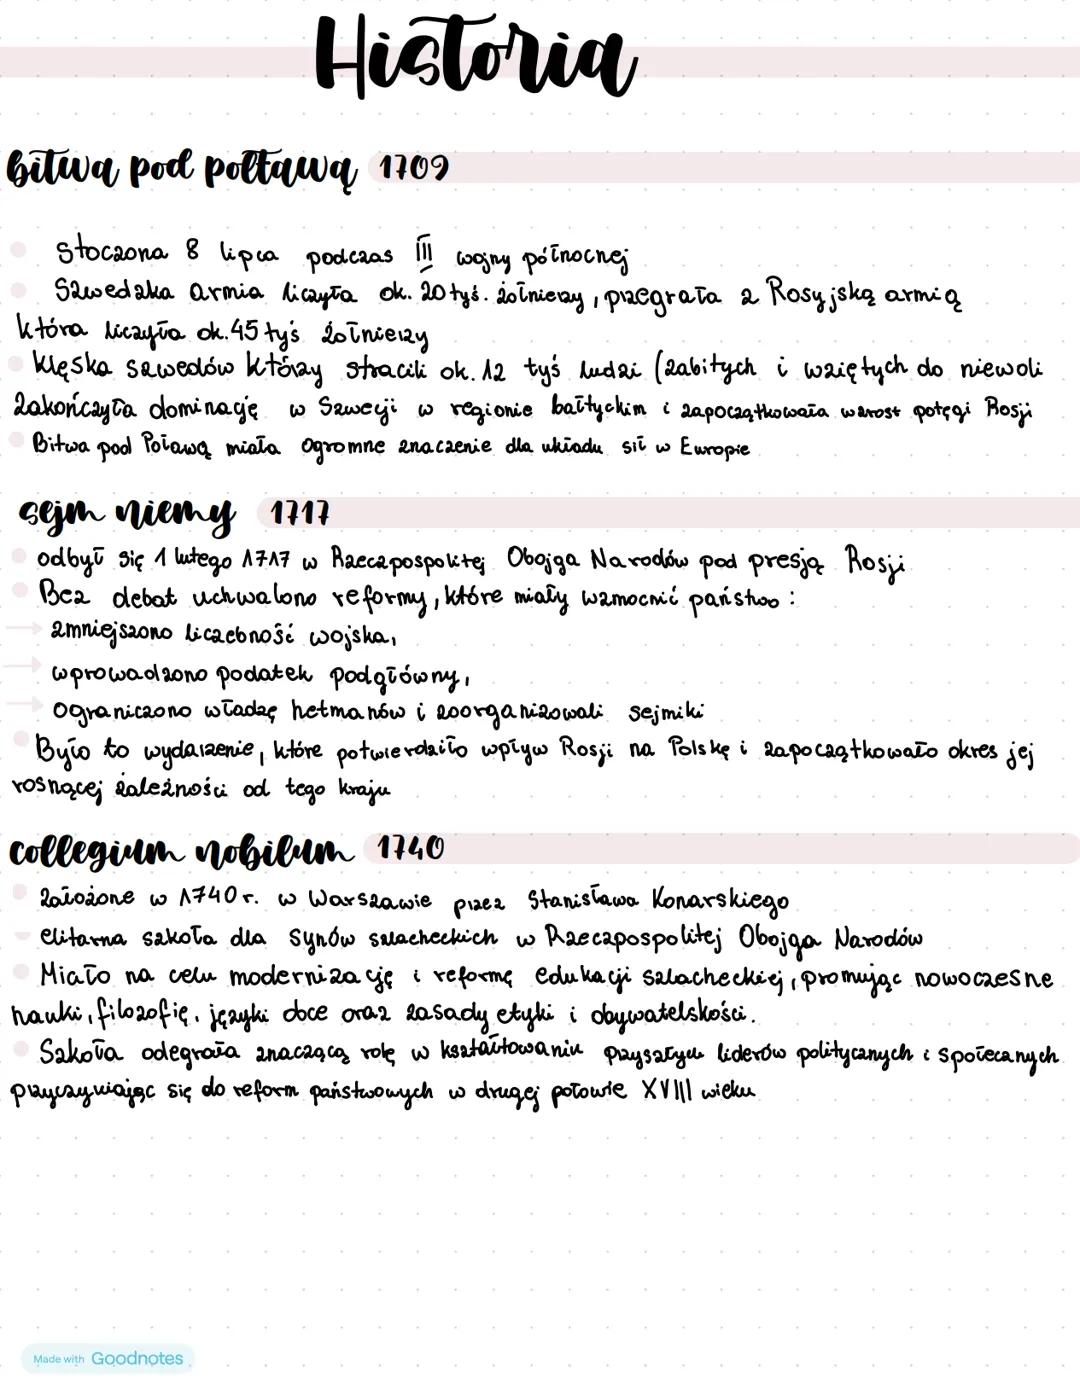 Historia
bitwa pod połtawą 1709
Stoczona 8 lipca podczas III wojny północnej
Szwedzka armia liczyła ok. 20 tyś. żołnierzy, przegrała z Rosyjską armią
która liczyła ok. 45 tyś żołnierzy
Klęska szwedów którzy stracili ok. 12 tyś ludzi (zabitych i wziętych do niewoli
zakończyła dominację w Szwecji w regionie bałtyckim i zapoczątkowała wzrost potęgi Rosji
Bitwa pod Poławą miała ogromne znaczenie dla układu sił w Europie
sejm niemy 1717
odbył się 1 lutego 1717 w Rzeczpospolitej Obojga Narodów pod presją Rosji
Bez debat uchwalono reformy, które miały wzmocnić państwo:
→ zmniejszono liczebność wojska,
→ wprowadzono podatek podgłówny,
→ ograniczono władzę hetmanów i zoorganizowali sejmiki
Było to wydarzenie, które potwierdziło wpływ Rosji na Polskę i zapoczątkowało okres jej
rosnącej zależności od tego kraju
collegium nobilum 1740
założone w 1740 r. w Warszawie przez Stanisława Konarskiego
elitarna szkoła dla synów szlacheckich w Rzeczpospolitej Obojga Narodów
Miało na celu modernizację i reformę edukacji szlacheckiej, promując nowoczesne
nauki, filozofię, języki obce oraz zasady etyki i obywatelskości.
Szkoła odegrała znaczącą rolę w kształtowaniu przyszłych liderów politycznych i społecznych
przyczyniając się do reform państwowych w drugiej połowie XVIII wieku
Made with Goodnotes